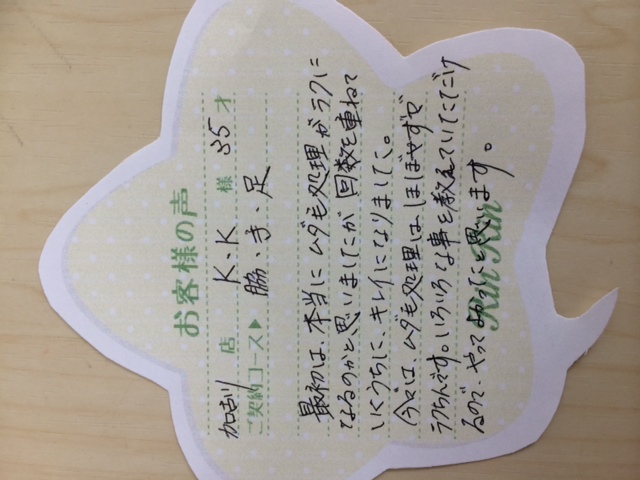 お客様の声
加古川 店 K.K 様 35 才
ご契約コース▶ 脇・き・足
最初は、本当にムダ毛処理がラクに
なるのかと思いましたが回数を重ねて
いくうちに、キレイになりました。
今では、ムダ毛処理は、ほぼやらずで
ラクちんです。いろいろな事を教えていただけ
るので、やってよかったと思います。
Rin Rin